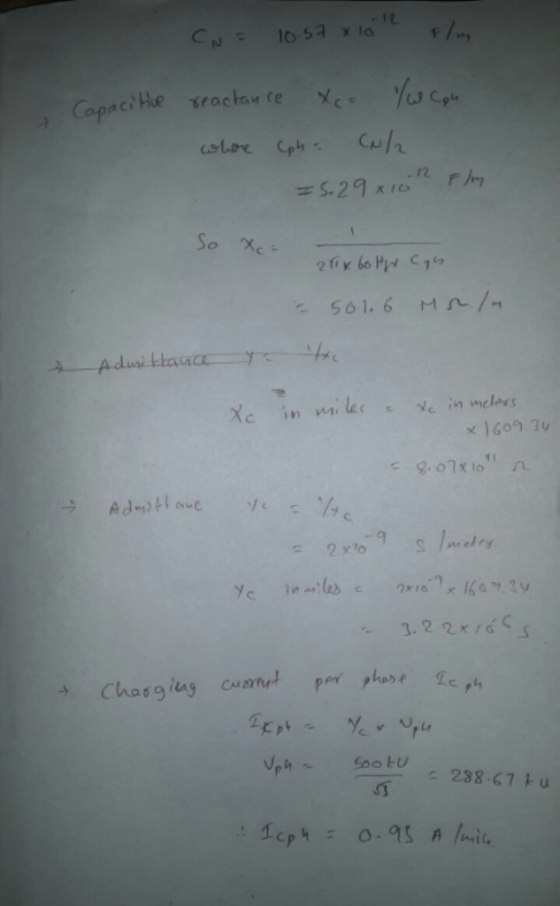 C_N = 10.57 × 10^-12 F/m
→ Capacitive reactance X_C = 1/ω C_ph
where C_ph = C_N/2
= 5.29 × 10^-12 F/m
So X_C = 1 / (2π × 60 Hz × C_ph)
= 501.6 M Ω /m
→ Admittance Y = 1/X_C
X_C in miles = X_C in meters
× 1609.34
= 8.07×10^11 Ω
→ Admittanc Y_C = 1/X_C
= 2×10^-9 S /meter
Y_C in miles = 2×10^-9 × 1609.34
= 3.22×10^-6 S
→ Charging current per phase I_C ph
I_C ph = Y_C × V_ph
V_ph = 500 kV / √3 = 288.67 kV
∴ I_C ph = 0.93 A /mile